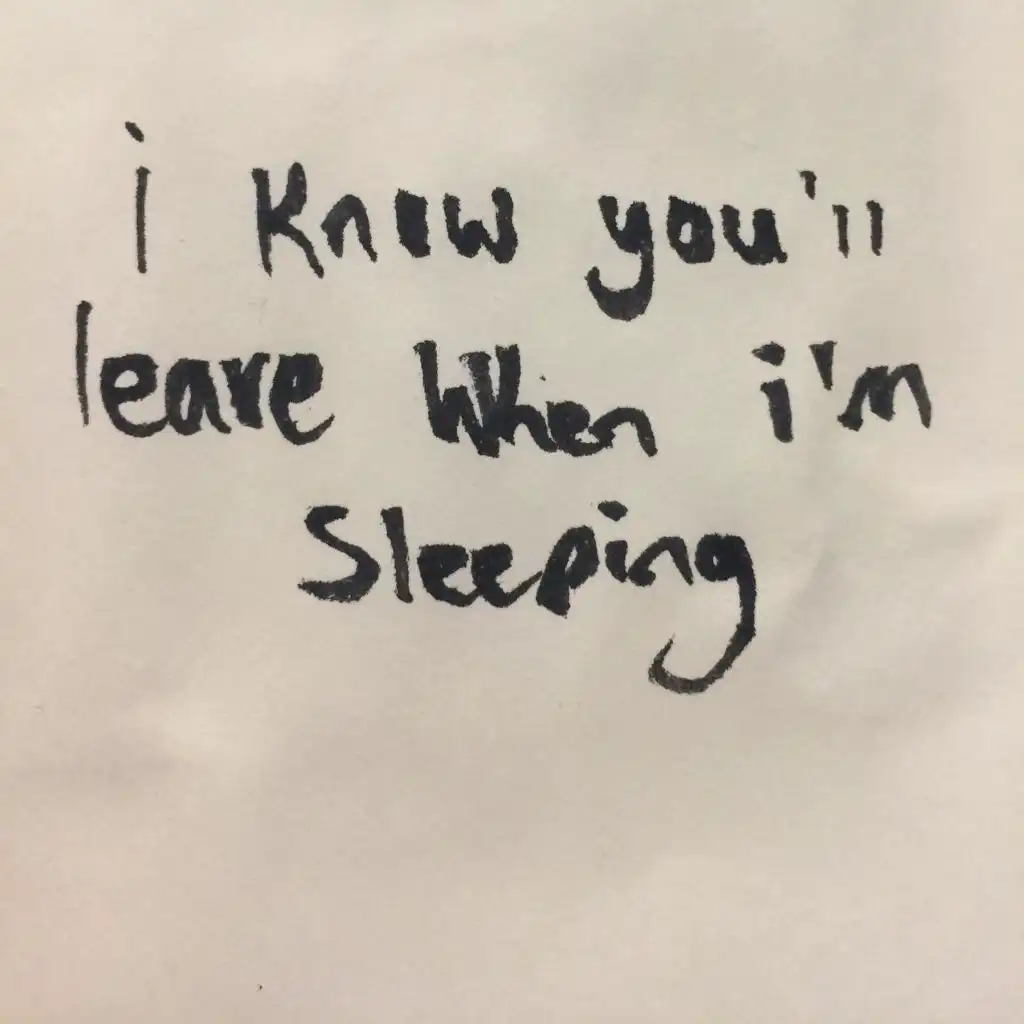 i know you'll
leave when i'm
Sleeping